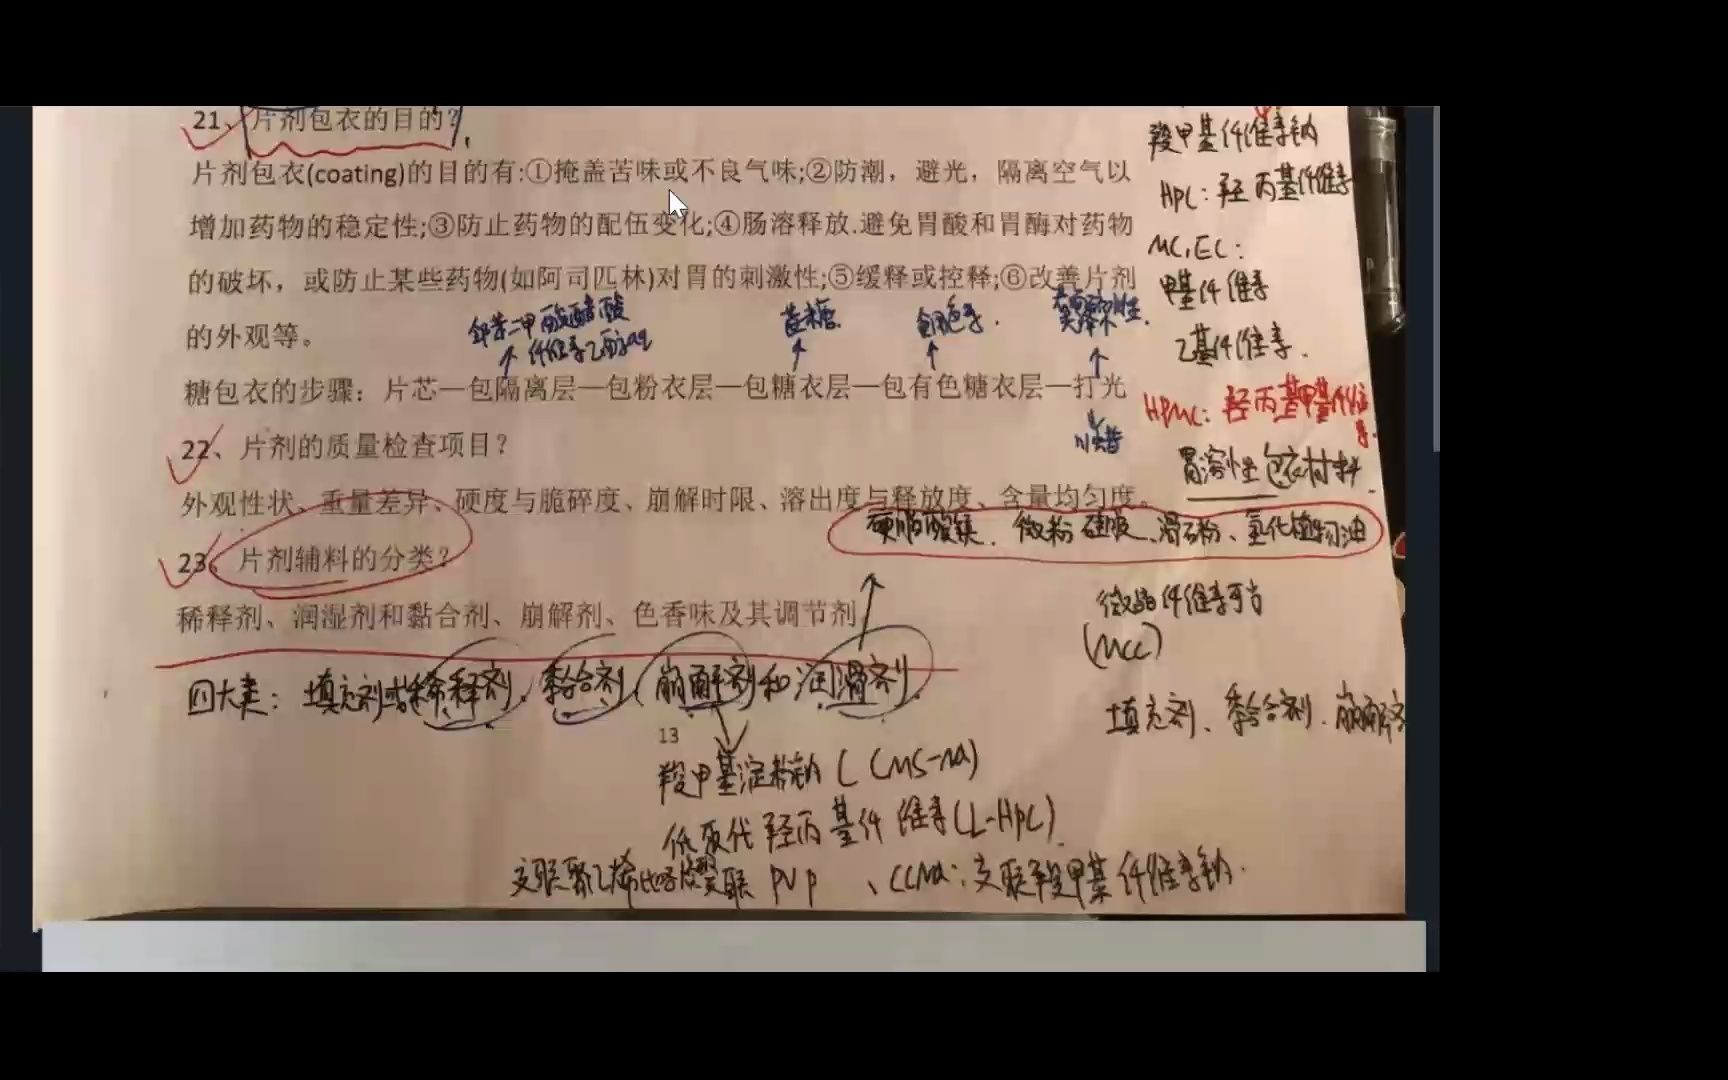 21、片剂包衣的目的？
片剂包衣(coating)的目的有:①掩盖苦味或不良气味;②防潮，避光，隔离空气以
增加药物的稳定性;③防止药物的配伍变化;④肠溶释放.避免胃酸和胃酶对药物
的破坏，或防止某些药物(如阿司匹林)对胃的刺激性;⑤缓释或控释;⑥改善片剂
的外观等。
邻苯二甲酸醋酸
纤维素乙醇
蔗糖
食用色素.
糖包衣的步骤：片芯—包隔离层—包粉衣层—包糖衣层—包有色糖衣层—打光
川蜡
22、片剂的质量检查项目？
外观性状、重量差异、硬度与脆碎度、崩解时限、溶出度与释放度、含量均匀度。
23、片剂辅料的分类？
稀释剂、润湿剂和黏合剂、崩解剂、色香味及其调节剂
四大类：填充剂或稀释剂、黏合剂、崩解剂和润滑剂.
13
羧甲基淀粉钠(CMS-Na)
低取代羟丙基纤维素(L-HPC)
交联聚乙烯比咯烷酮交联PVP、CCNa：交联羧甲基纤维素钠.
羧甲基纤维素钠
HPC：羟丙基纤维素
MC,EC：
甲基纤维素
乙基纤维素.
HPMC：羟丙基甲基纤维素.
胃溶性包衣材料.
硬脂酸镁、微粉硅胶、滑石粉、氢化植物油
微晶纤维素可当
(MCC)
填充剂、黏合剂、崩解剂